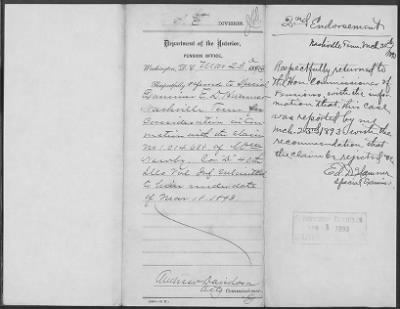 S. E. DIVISION
Department of the Interior,
PENSION OFFICE,
Washington, D. C.
Respectfully referred to Special
Examiner
Nashville Tenn for
consideration in con-
nection with the claim
No 1,014,686 of
Newby. Co. "D" 40th
Ills Vol. Inf. submitted
to him under date
of Mar 18, 1893.
Andrew Davidson
Acting Commissioner.
2nd Endorsement
Nashville Tenn. Mch
Respectfully returned to
the Hon. Commissioner of
Pensions, with the infor-
mation that this case
was reported by me
Mch. 1893, with the
recommendation that
the claim be rejected
Special Examr.
1893